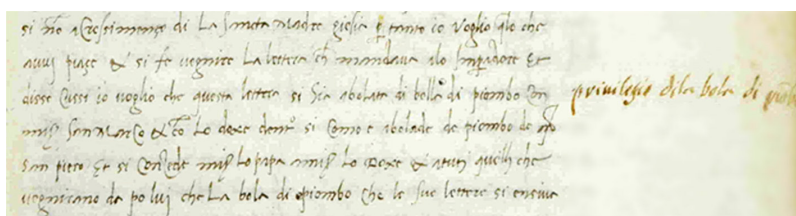 si no acressimento di La Sancta Madre giesia p tanto io voglio q̃lo che
avui piaçe & si fe vegnire La lettera ch mandava alo Imperadore Et
disse Cussi io voglio che questa lettera si sia abolata di bolla di piombo Cn
mis San Marco & Lo doxe dentᵒ si como e abolade de piombo de
San piero Et si Conçede mis Lo papa mis lo doxe & atuti quelli che
vegnirano da po lui che La bola di piombo che le sue lettere si
privilegio dela bola di